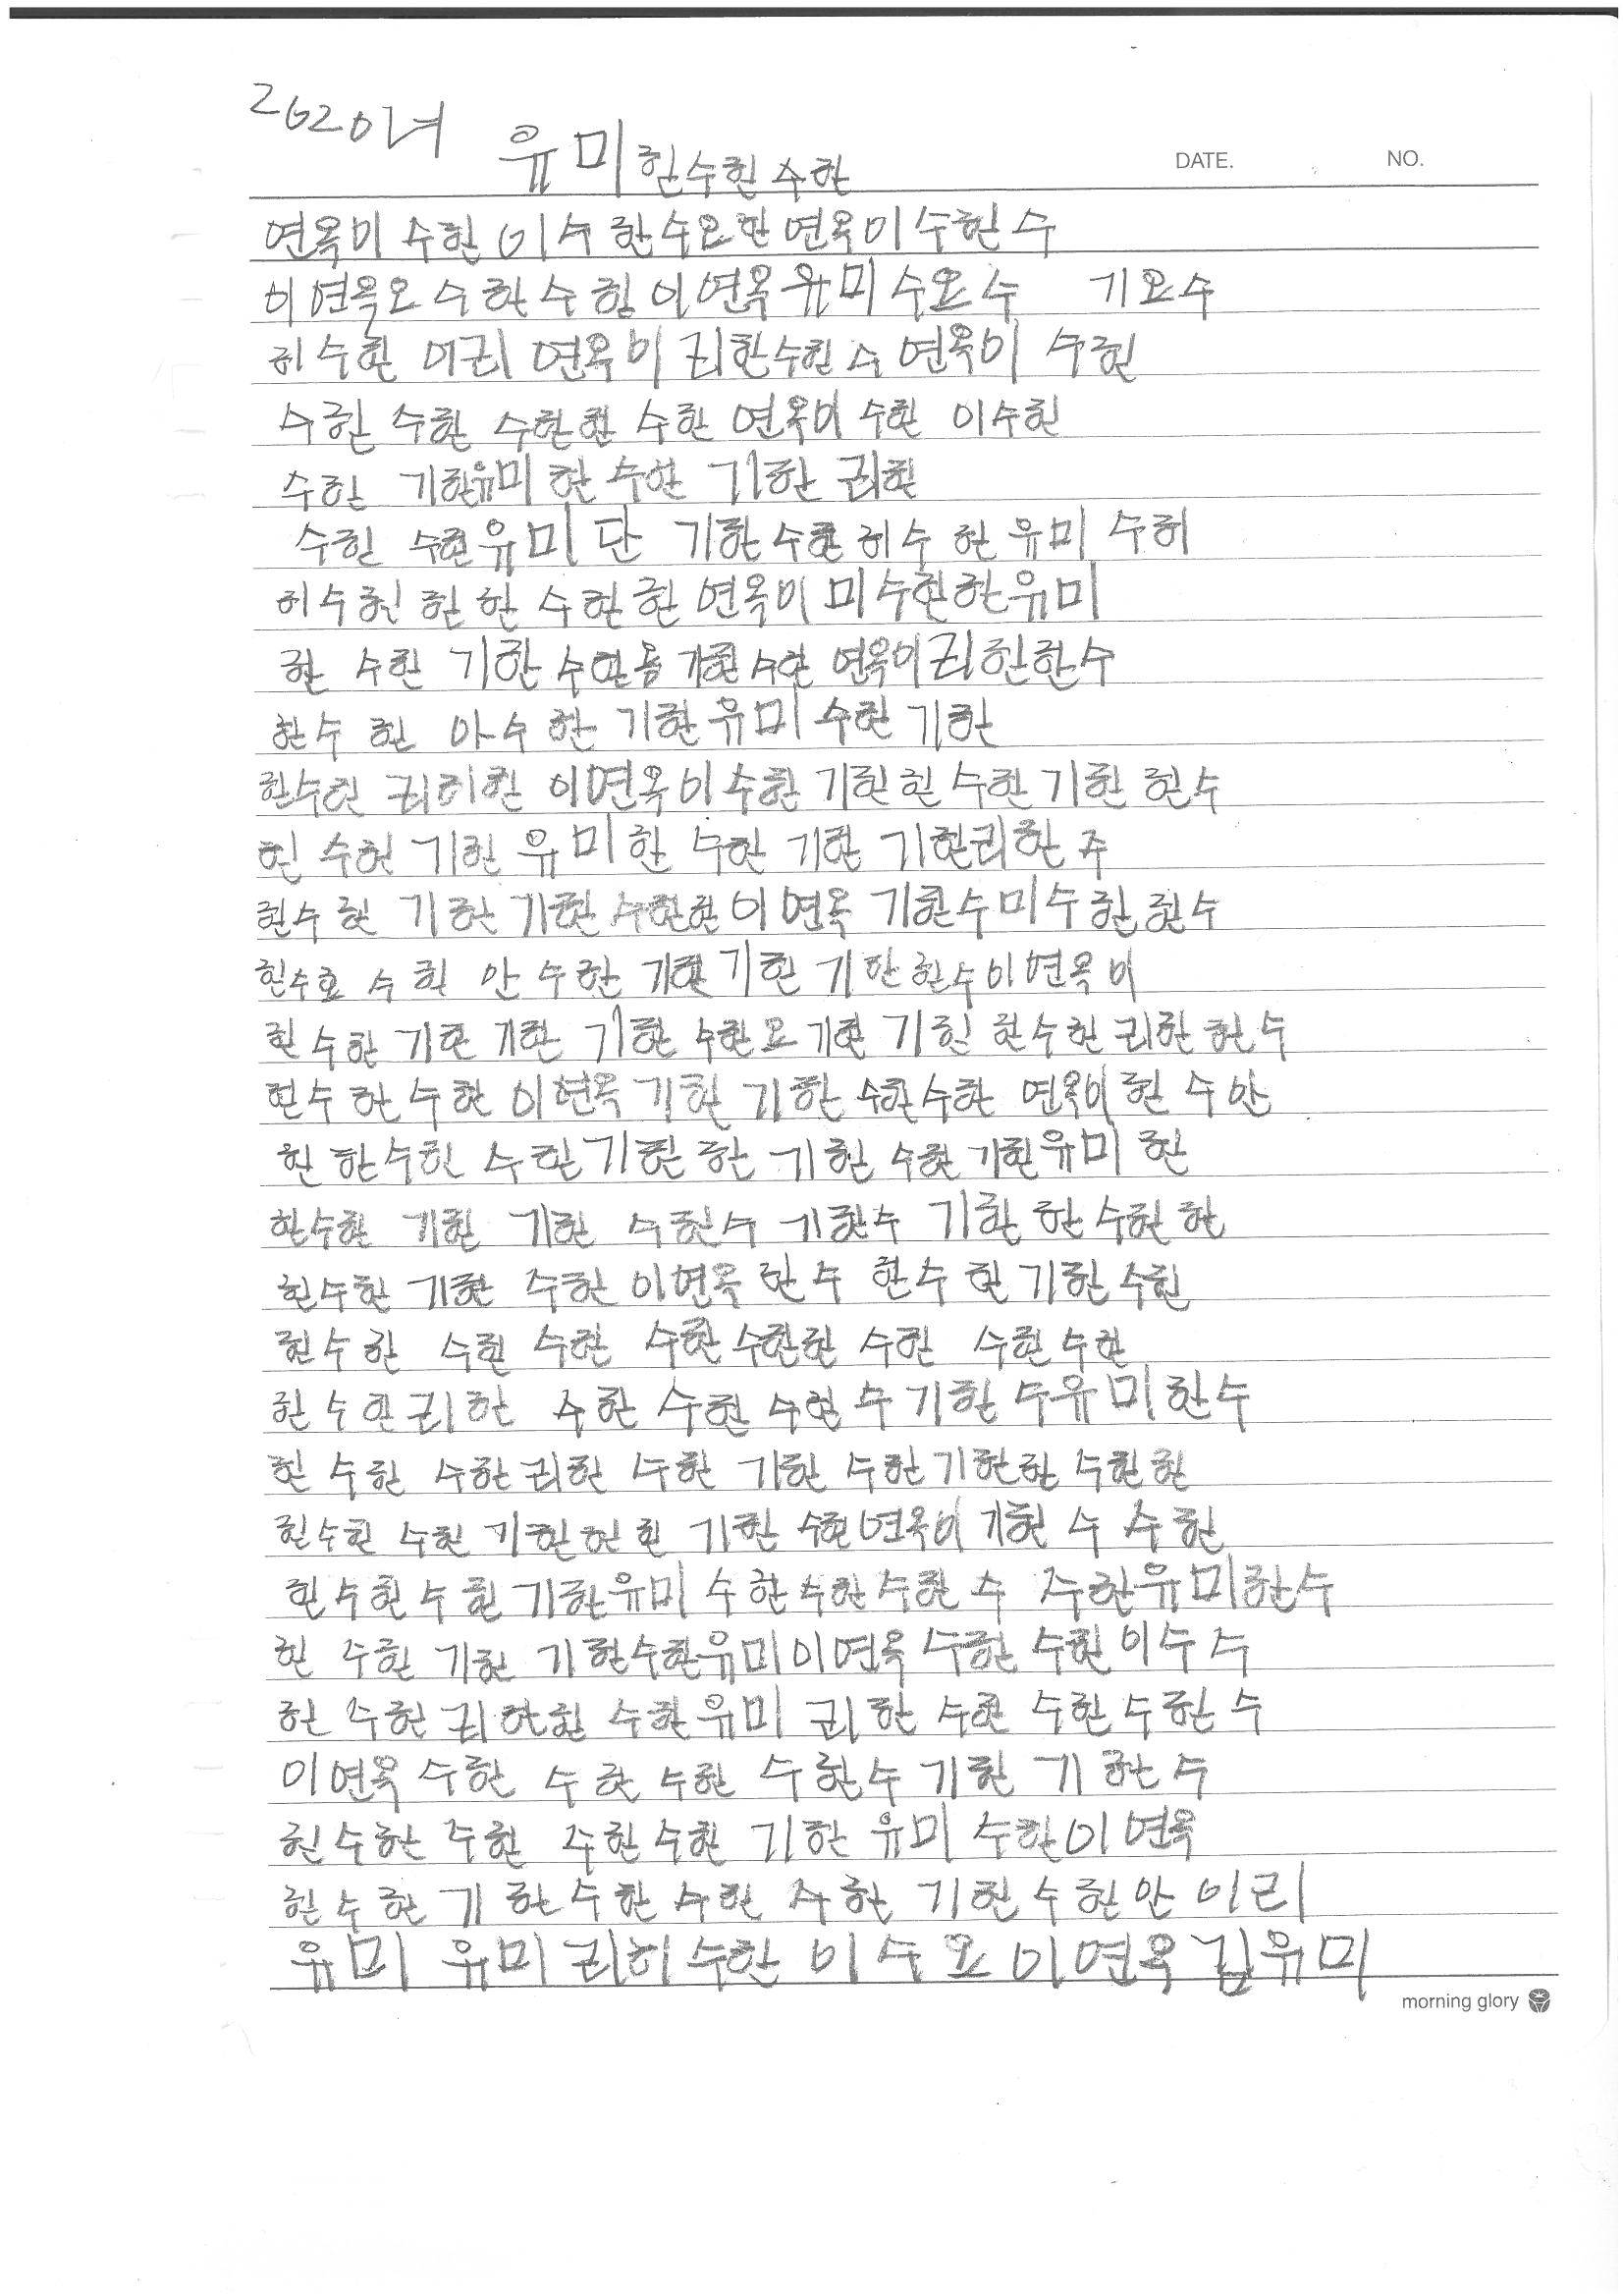 유미 한수한수한
DATE. NO.
연옥이 수한 이수한수요한연옥이수한수
이연옥오수한수힘이연옥유미수요수 기요수
히수한 이리 연옥이 리한수한수 연옥이 수한
수한 수한 수한한 수한 연옥이 수한 이수한
수한 기한유미한수한 기한 리한
수한 수한유미단 기한수한히수한유미 수히
히수한한한수한한연옥이미수한한유미
한 수한 기한 수한 기한수한 연옥이리한한수
한수한 아수한 기한유미수한기한
한수한 리리한 이연옥이수한기한한수한기한한수
한수한기한유미한 수한 기한 기한리한주
한수한 기한기한수한한이연옥 기한수미수한한수
한수효 수한 안수한 기한기한기한한수이연옥이
한수한기한 기한 기한 수한요기한 기한 한수한리한한수
한수한수한 이현옥기한기한 수한수한 연옥이한수안
한한수한 수한기한한 기한 수한기한유미한
한수한 기한 기한 수한수 기한수 기한 한수한한
한수한 기한 수한이연옥한수 한수한기한수한
한수한 수한 수한 수한수한한 수한 수한수한
한수한리한 수한 수한수한수기한 수유미한수
한수한 수한리한 수한 기한 수한기한한수한한
한수한 수한 기한한한 기한 수한연옥이 기한수 수한
한수한수한기한유미수한수한수한수 수한유미한수
한 수한 기한 기한수한유미이연옥 수한 수한이수수
한 수한리한한 수한유미 리한 수한 수한수한수
이연옥 수한 수한 수한 수한수기한 기한수
한수한 수한 수한수한 기한유미 수한이연옥
한수한기한수한수한 수한 기한수한안이리
유미 유미리히수한 이수요이연옥김유미
morning glory